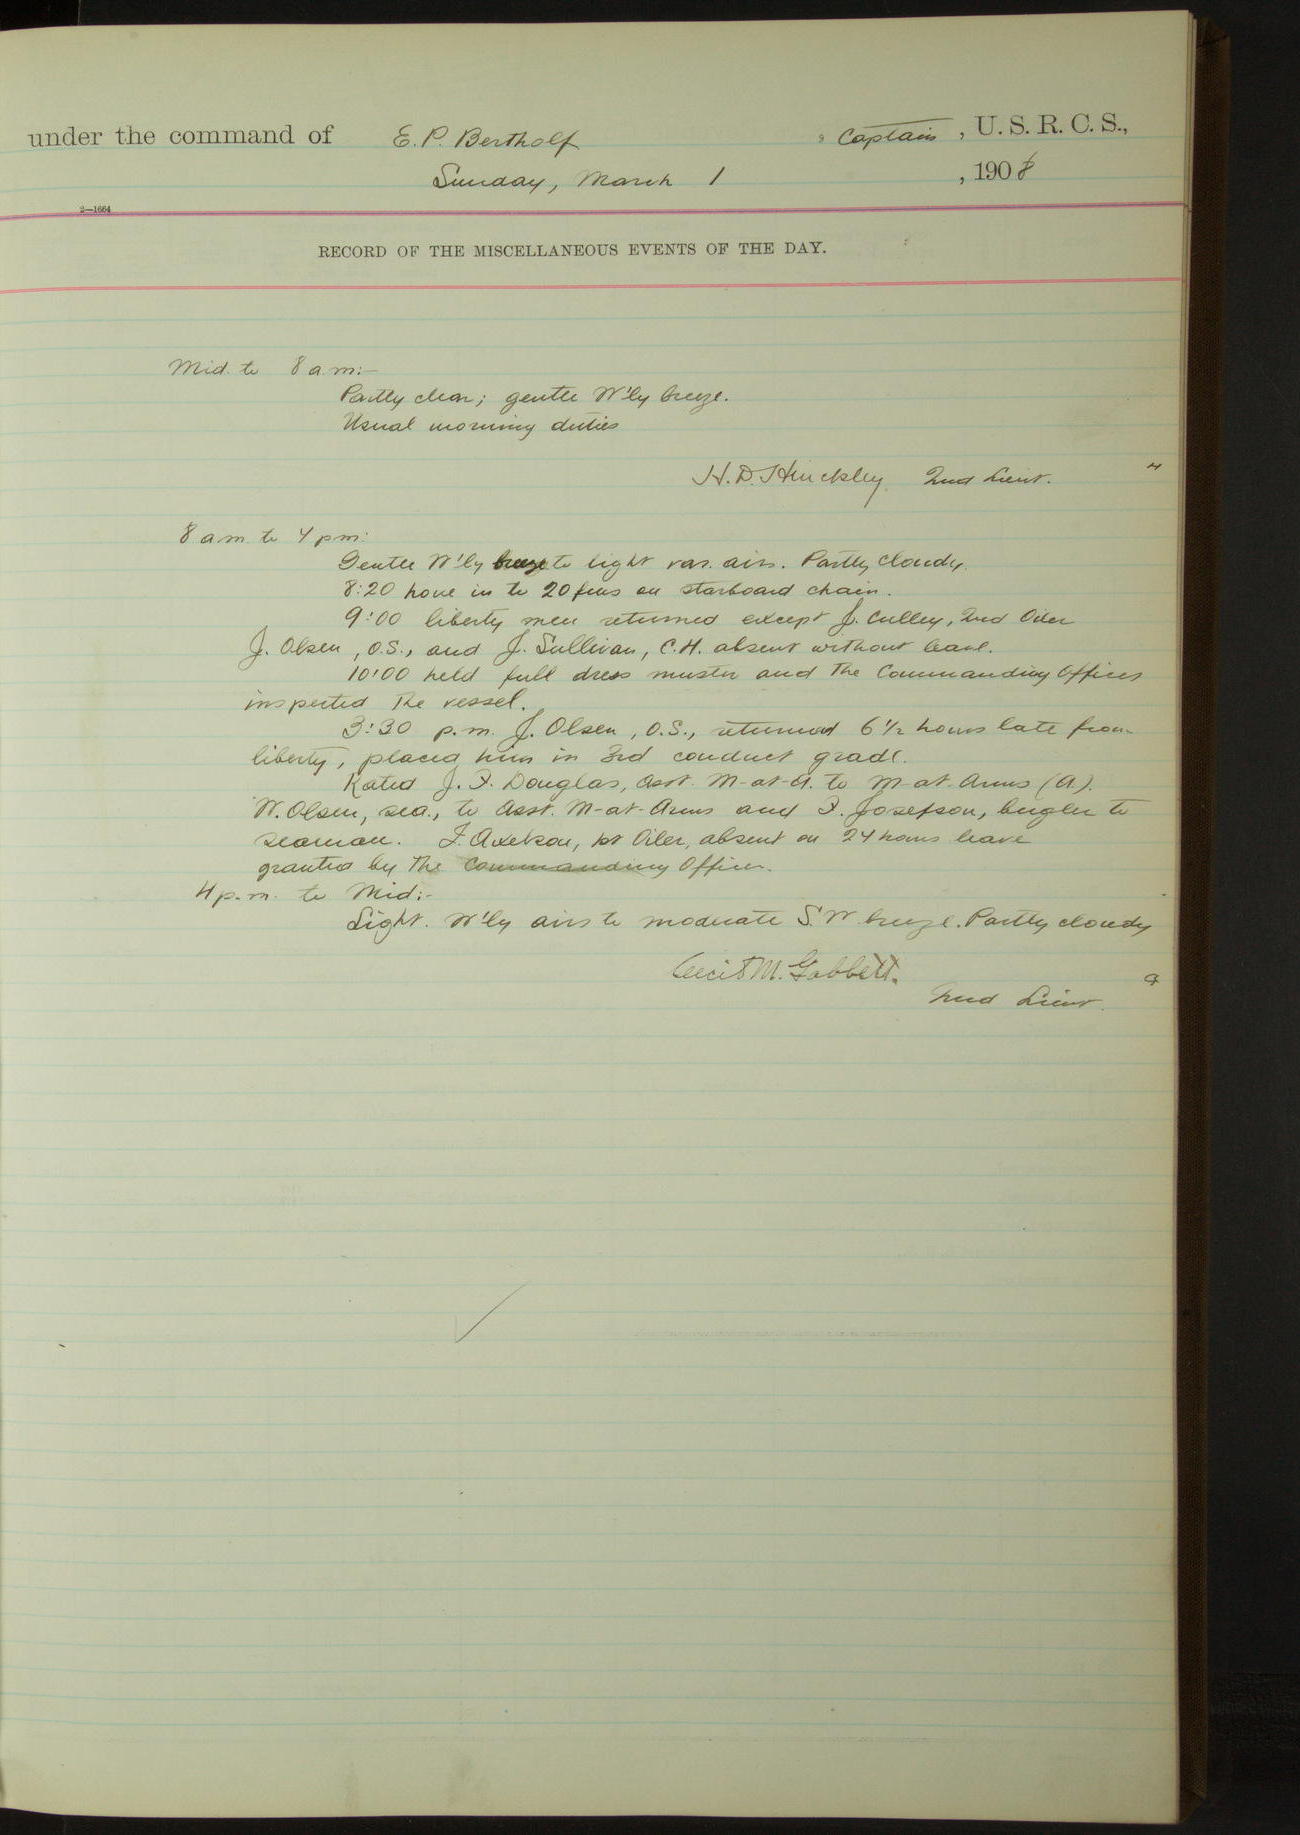 under the command of E. P. Bertholf, Captain, U. S. R. C. S.,
Sunday, March 1, 1908
2—1664
RECORD OF THE MISCELLANEOUS EVENTS OF THE DAY.
Mid. to 8 a.m:—
Partly clear; gentle W'ly breeze.
Usual morning duties
H. D. Hinckley 2nd Lieut.
8 a m to 4 p m:
Gentle W'ly breeze to light var. airs. Partly cloudy.
8:20 hove in to 20 fms on starboard chain.
9:00 liberty men returned except J. Culley, 2nd Oiler
J. Olsen, O.S., and J. Sullivan, C.H. absent without leave.
10:00 held full dress muster and the Commanding Officer
inspected the vessel.
3:30 p.m. J. Olsen, O.S., returned 6½ hours late from
liberty, placed him in 3rd conduct grade.
Rated J. F. Douglas, Asst. M-at-A. to M-at-Arms (A).
W. Olsen, sea., to Asst. M-at-Arms and F. Josefson, bugler to
seaman. F. Axelson, 1st Oiler, absent on 24 hours leave
granted by the Commanding Officer.
4 p.m. to Mid:-
Light. W'ly airs to moderate S.W. breeze. Partly cloudy
Cecil M. Gabbett.
2nd Lieut.